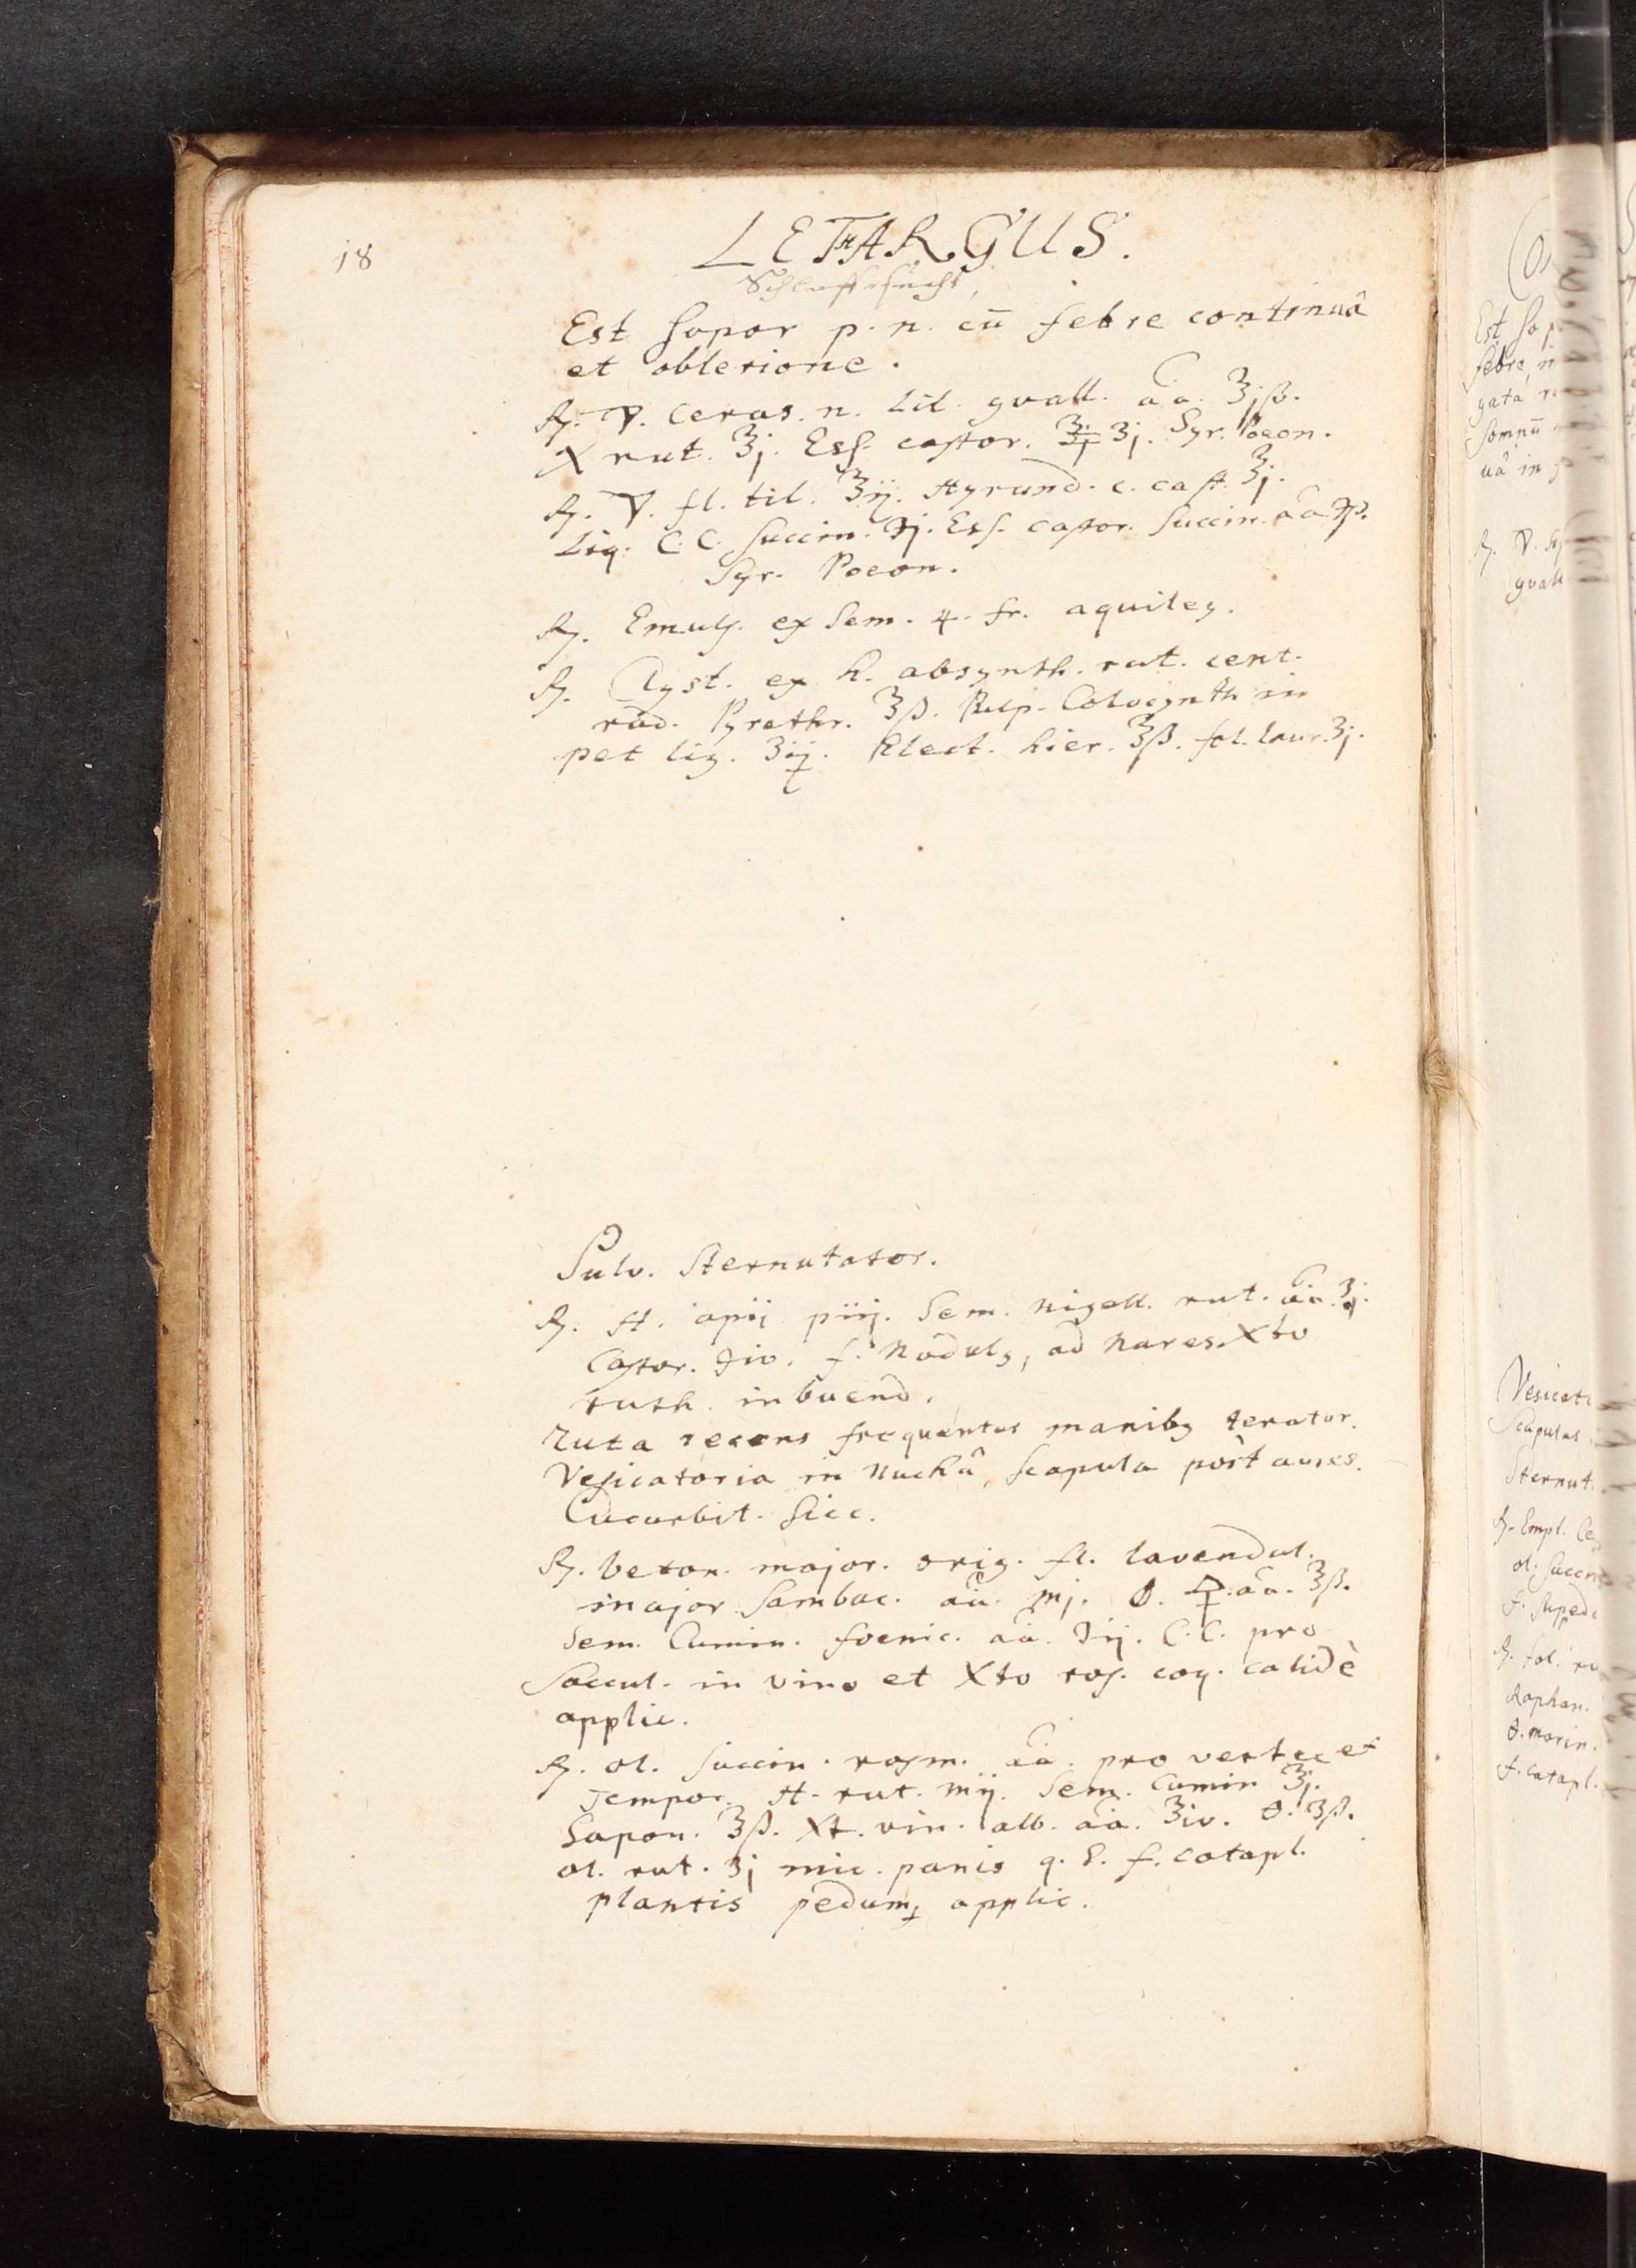 18
LETHARGUS.
Schlaffsucht,
Est Sopor p. n. cū febre continuâ
et oblivione.
℞. 🜄. ceras. n. Lil. gvall. aa. ℥jß.
X rut. ℥j. Ess. castor. ʒj. Syr. Poeon.
℞. 🜄. fl. til. ℥ij. Hyrund. c. cast ℥j.
Liq. C. C. Succin. ℈j. Ess. castor. Succin. aa ℈ß.
Syr. Poeon.
℞. Emuls. ex Sem. 4. fr. aquileg.
℞. Clyst. ex h. absynth. rut. cent.
rad. Pyrethr. ℥ß. Pulp. Colocynth in
pet lig. ʒij. Elect. hier. ℥ß. fol. laur. ʒj.
Pulv. Sternutator.
℞. H. apij piij. Sem. nigell. rut. aa. ʒj.
Castor. ℈iv. f. Noduls, ad nares. Xto
ruth. inbuend.
Ruta recens frequenter manibꝫ teratur.
Vesicatoria in Nuchâ, Scapula post aures.
Cucurbit. Sicc.
℞. beton. major. orig. fl. lavendul.
major Sambuc. aa. mj. aa. ℥ß.
Sem. Cumin. foenic. aa. ℈ij. C. C. pro
Saccul. in vino et Xto ros. coq. calidè
applic.
℞. ol. Succin. rosm. aa. pro vertice et
Tempor. H. rut. mij. Sem. Cumin ℥j.
Sapon. ℥ß. Xt. vin. alb. aa. ℥iv. ℥ß.
ol. rut. ʒj mic. panis q. S. f. catapl.
plantis pedum applic.
Est Sop
febre, in
gatâ
Somnū
uâ in
℞. 🜄.
gvall
Vesicat
Scapulas
Sternut
℞. Empl. Ce
ol. Succin
f. Suped
℞. fol. ru
Raphan.
marin.
f. catapl.